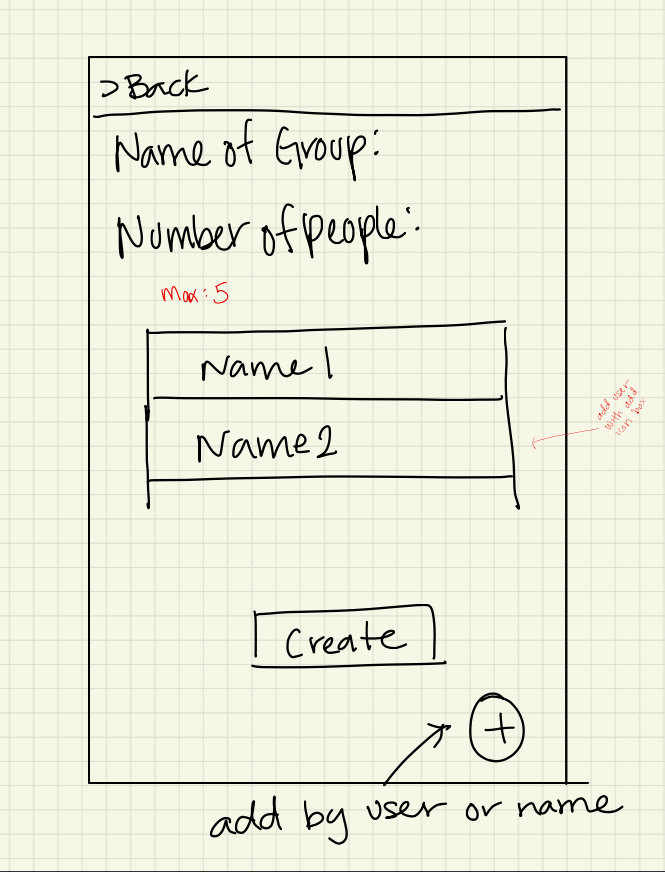 >Back
Name of Group:
Number of people:
Max: 5
Name 1
Name 2
add user
with add
icon box
Create
+
add by user or name